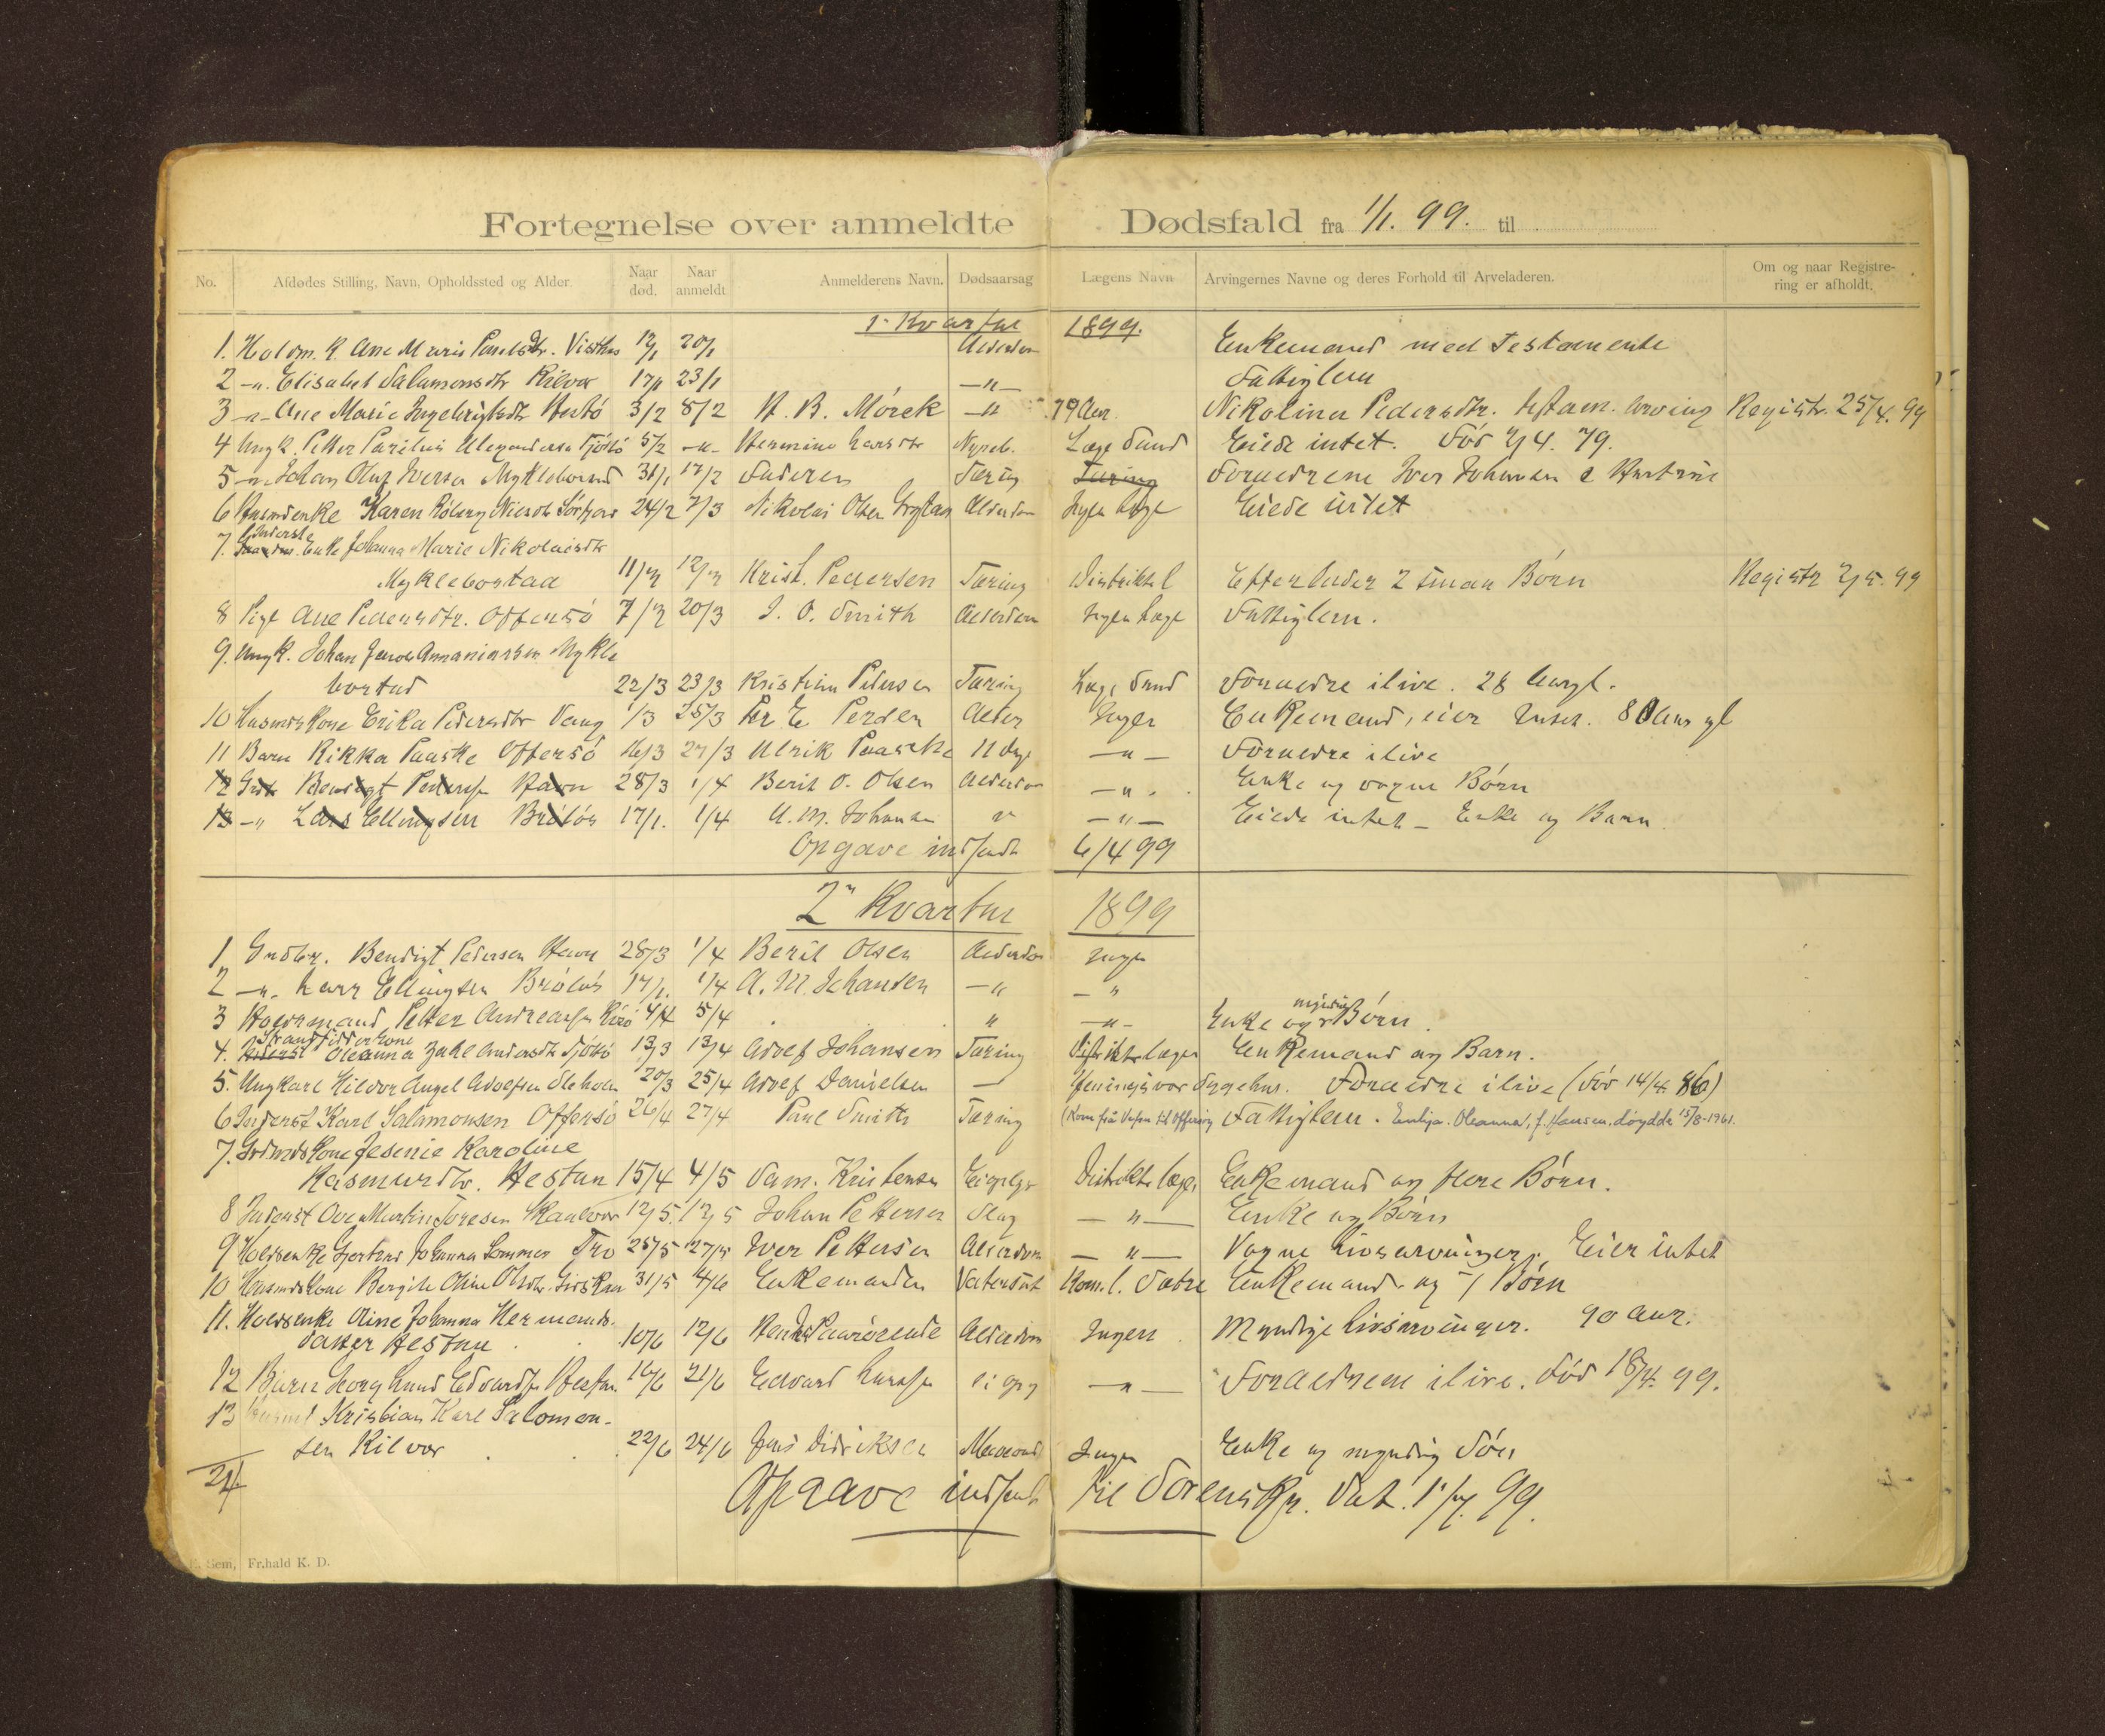 Fortegnelse over anmeldte Dødsfald fra 1/1. 99. til
No. Afdødes Stilling, Navn, Opholdssted og Alder. Naar død. Naar anmeldt Anmelderens Navn. Dødsaarsag Lægens Navn Arvingernes Navne og deres Forhold til Arveladeren. Om og naar Registrering er afholdt.
1. Kvartal 1899.
1. K. Ane Marie 20/1 Alderdom Enkemand med Testamente
2 -"- Elisabet Salamonsdtr Kilvær 17/1 23/1 -"- Fattiglem
3 -"- Ane Marie Ingebrigtsdtr 3/2 8/2 A. B. Mörck -"- 79 Aar. Nikoline Pedersdtr. Registr. 25/4. 99
4 Ungk. Petter 5/2 -"- Hermine Larsdtr Læge Sund Eiede intet. Föd 79.
5 -"- Johan Oluf Iversen Myklebostad 31/1 17/2 Faderen Tæring Tæring Forældrene Iver Johansen & Hustru
6 Karen 24/2 7/3 Nikolai Olsen Alderdom Ingen Læge Eiede intet
7. Inderste Enke Johanna Marie Nikolaisdtr
Myklebostad 11/3 12/3 Krist. Pedersen Tæring Distriktsl Efterlader 2 smaa Börn Registr 99
8 Pige Ane Pedersdtr. Offersö 7/3 20/3 J. O. Smith Alderdom Ingen Læge Fattiglem.
9. Ungk. Johan Ananiassen Mykle
bostad 22/3 23/3 Kristian Pedersen Tæring Læge Sund Forældre ilive. 28 Aargl.
10 Husmdskone Erika Pedersdtr Vang 1/3 25/3 Per E Alder Ingen Enkemand, eier 80 Aar gl
11 Barn Rikka Paaske Offersö 16/3 27/3 Ulrik Paaske 11 Dage -"- Forældre ilive
12 Bendigt Pedersen Havn 28/3 1/4 Berit O. Olsen Alderdom -"- Enke og voxne Börn
13 -"- Lars Ellingsen Brölös 17/1. 1/4 A. M. Johansen " -"- Eiede intet - Enke og Barn
Opgave indsendt 6/4 99
2" Kvartal 1899
1 Grdbr. Bendigt Pedersen Havn 28/3 1/4 Berit Olsen Alderdom Ingen
2 -"- Lars Ellingsen Brölös 17/1. 1/4 A. M. Johansen -"- -"-
3 Petter Andreassen 4/4 5/4 " -"- Enke og myndige Börn.
4. Strandsidderkone Oleanna Andersdtr Tjötö 13/3 13/4 Adolf Johansen Tæring Distriktslægen Enkemand og Barn.
5. Ungkarl Hildor Angel Adolfsen 20/3 25/4 Adolf Danielsen — Forældre ilive (Föd 14/4. 86)
6 Inderst Karl Salamonsen Offersö 26/4 27/4 Paul Smith Tæring (Kom frå til Offersöy Fattiglem. Emlija. Oleanna, f. Hansen, döydde 15/8-1961.
7. Jesenie Karoline
Rasmusdtr. Hestun 15/4 4/5 Sam. Kristensen Distriktslægen Enkemand og flere Börn.
8 Inderst Ove Martin Toresen Skaalvær 12/5. 12/5 Johan Pettersen Slag -"- Enke og Börn
9 Johanna Sommer Tro 25/5 27/5 Iver Pettersen Alderdom -"- Voxne Livsarvinger. Eier intet
10 Husmdskone Bergite Oline Olsdtr. 31/5 4/6 Enkemanden Vatersot Kom.l. Sætre Enkemand og 7 Börn
11. Oline Johanna Hermands-
datter Hestun 10/6 12/6 Alderdom Ingen Myndige Livsarvinger. 90 Aar.
12 Barn Georg Lund Edvards. Hestun. 16/6 21/6 Edvard -"- Forældrene ilive. Föd 18/4. 99.
13 Kristian Karl Salomon-
sen Kilvær 22/6 24/6 Jens Didriksen Ingen Enke og myndig Sön
24 Opgave indsendt til Sorenskr. Dat. 1/7. 99.
Sem, Fr.hald K. D.